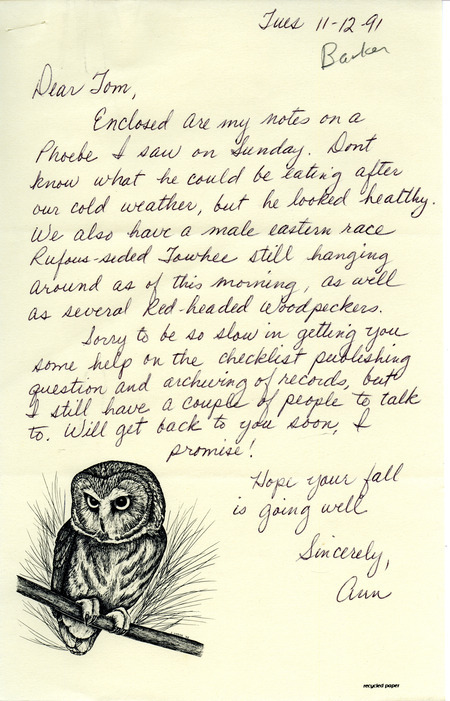 Tues 11-12-91
Barker
Dear Tom,
Enclosed are my notes on a
Phoebe I saw on Sunday. Dont
know what he could be eating after
our cold weather, but he looked healthy.
We also have a male eastern race
Rufous-sided Towhee still hanging
around as of this morning, as well
as several Red-headed Woodpeckers.
Sorry to be so slow in getting you
some help on the checklist publishing
question and archiving of records, but
I still have a couple of people to talk
to. Will get back to you soon, I
promise!
Hope your fall
is going well
Sincerely,
Ann
recycled paper